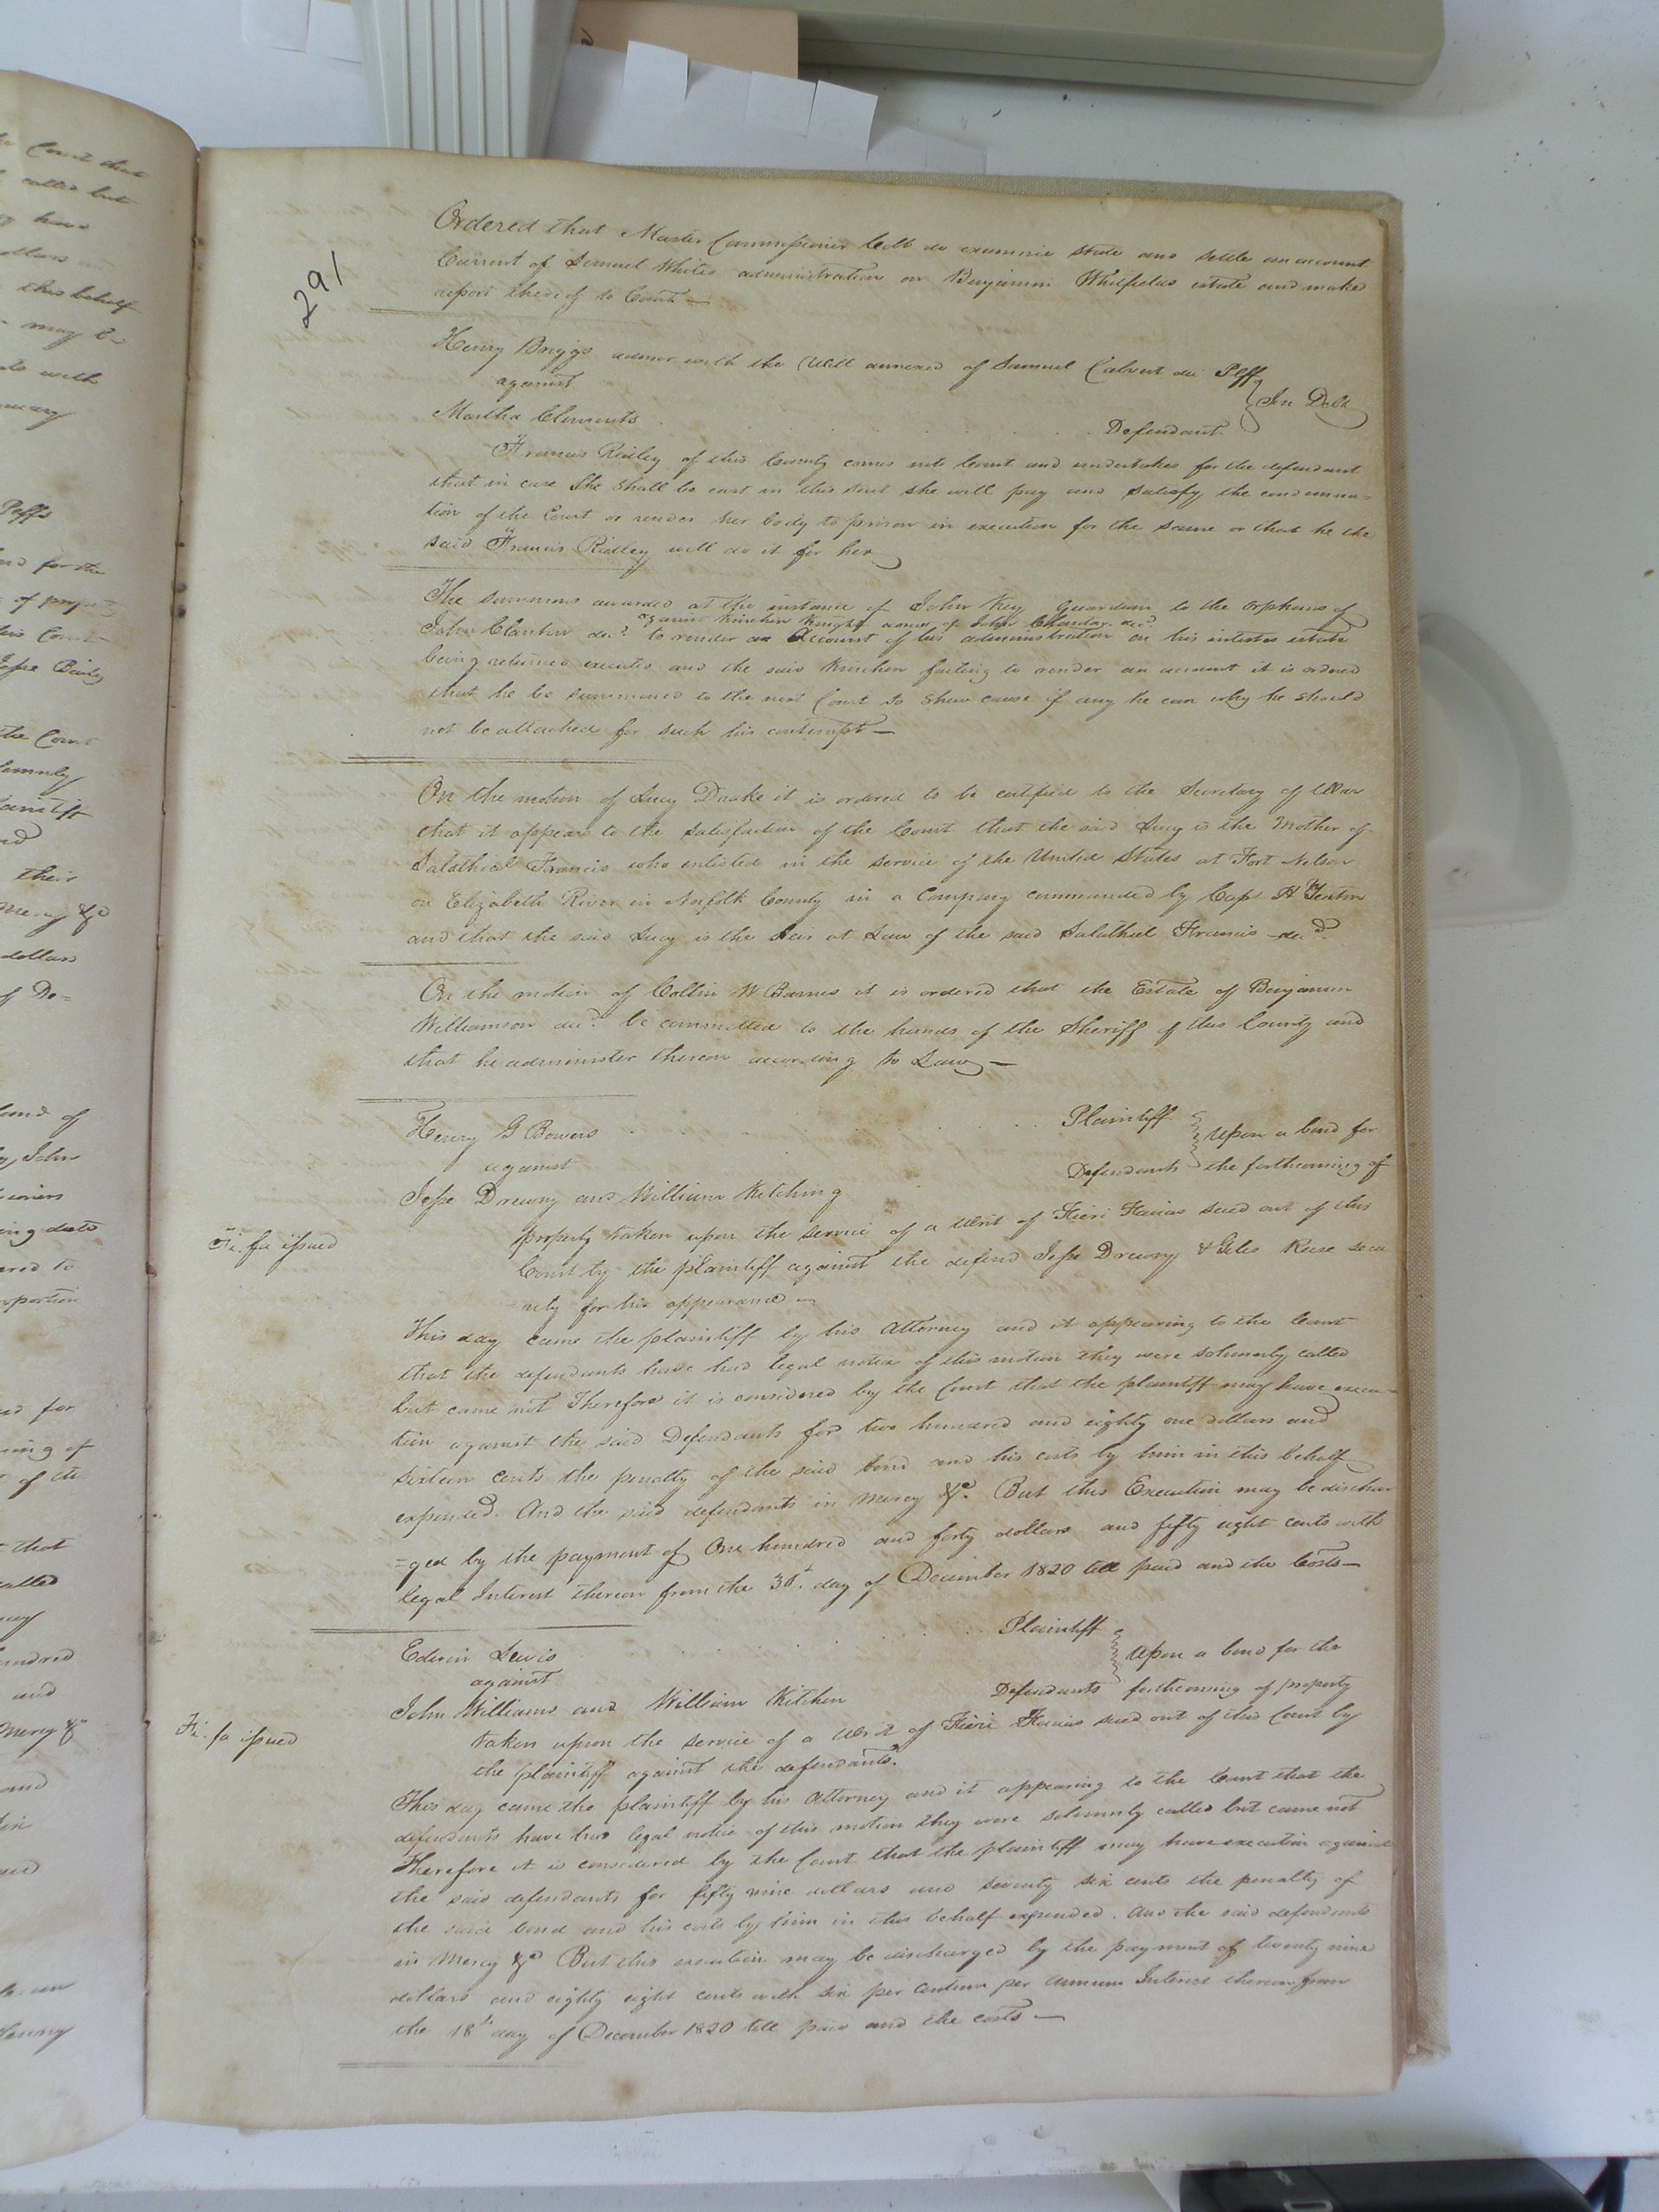 291
Ordered that Master Commissioner Cobb do examine state and settle an account
Current of Samuel Whites administration on Benjamin Whitfields estate and make
report thereof to Court —
Henry Briggs admor with the Will annexed of Samuel Calvert dec Plff
against
In Debt
Martha Clements Defendant
Francis Ridley of this County comes into Court and undertakes for the defendant
that in case She Shall be cast in this Suit she will pay and Satisfy the condemna=
tion of the Court or render her body to prison in execution for the same or that he the
said Francis Ridley will do it for her
The summons awarded at the instance of John Key Guardian to the orphans of
against Kinchen Knight admr of John
John Clanton decd. to render an Account of his administration on his intestes estate
being returned executed and the said Kinchen failing to render an account it is ordered
that he be Summoned to the next Court to Shew cause if any he can why he should
not be attached for such his contempt —
On the motion of Lucy Drake it is ordered to be certified to the Secretary of War
that it appears to the Satisfaction of the Court that the said Lucy is the Mother of
Salathiel Francis who enlisted in the service of the United States at Fort Nelson
on Elizabeth River in Norfolk County in a Company commanded by Capt
and that the said Lucy is the heir at Law of the said Salathiel Francis decd.
On the motion of Collin W Barnes it is ordered that the Estate of Benjamin
Williamson decd. be committed to the hands of the Sheriff of this County and
that he administer thereon according to Law —
Henry G Bowers Plaintiff
against
Upon a bond for
Jesse Drewry and William Kitching Defendants the forthcoming of
Fi. fa issued
property taken upon the service of a Writ of Fieri Facias sued out of this
Court by the plaintiff against the defend Jesse Drewry & Giles Reese secu
rity for his appearance —
This day came the plaintiff by his Attorney and it appearing to the Court
that the defendants have had legal notice of this motion they were solemnly called
but came not Therefore it is considered by the Court that the plaintiff may have execu=
tion against the said Defendants for two hundred and eighty one dollars and
sixteen cents the penalty of the said bond and his costs by him in this behalf
expended. And the said defendants in mercy &c. But this Execution may be dischar
=ged by the payment of One hundred and forty dollars and fifty eight cents with
legal Interest thereon from the day of December 1820 till paid and the Costs —
Edwin Lewis Plaintiff
against
Upon a bond for the
John Williams and William Kitchen Defendants forthcoming of property
Fi. fa issued
taken upon the service of a Writ of Fieri Facias sued out of this Court by
the plaintiff against the defendants.
This day came the plaintiff by his Attorney and it appearing to the Court that the
defendants have had legal notice of this motion they were solemnly called but came not
Therefore it is considered by the Court that the plaintiff may have execution against
the said defendants for fifty nine dollars and seventy six cents the penalty of
the said bond and his costs by him in this behalf expended. And the said defendants
in Mercy &c But this execution may be discharged by the payment of twenty nine
dollars and eighty eight cents with six per centum per annum Interest thereon from
the 18th day of December 1820 till paid and the costs —